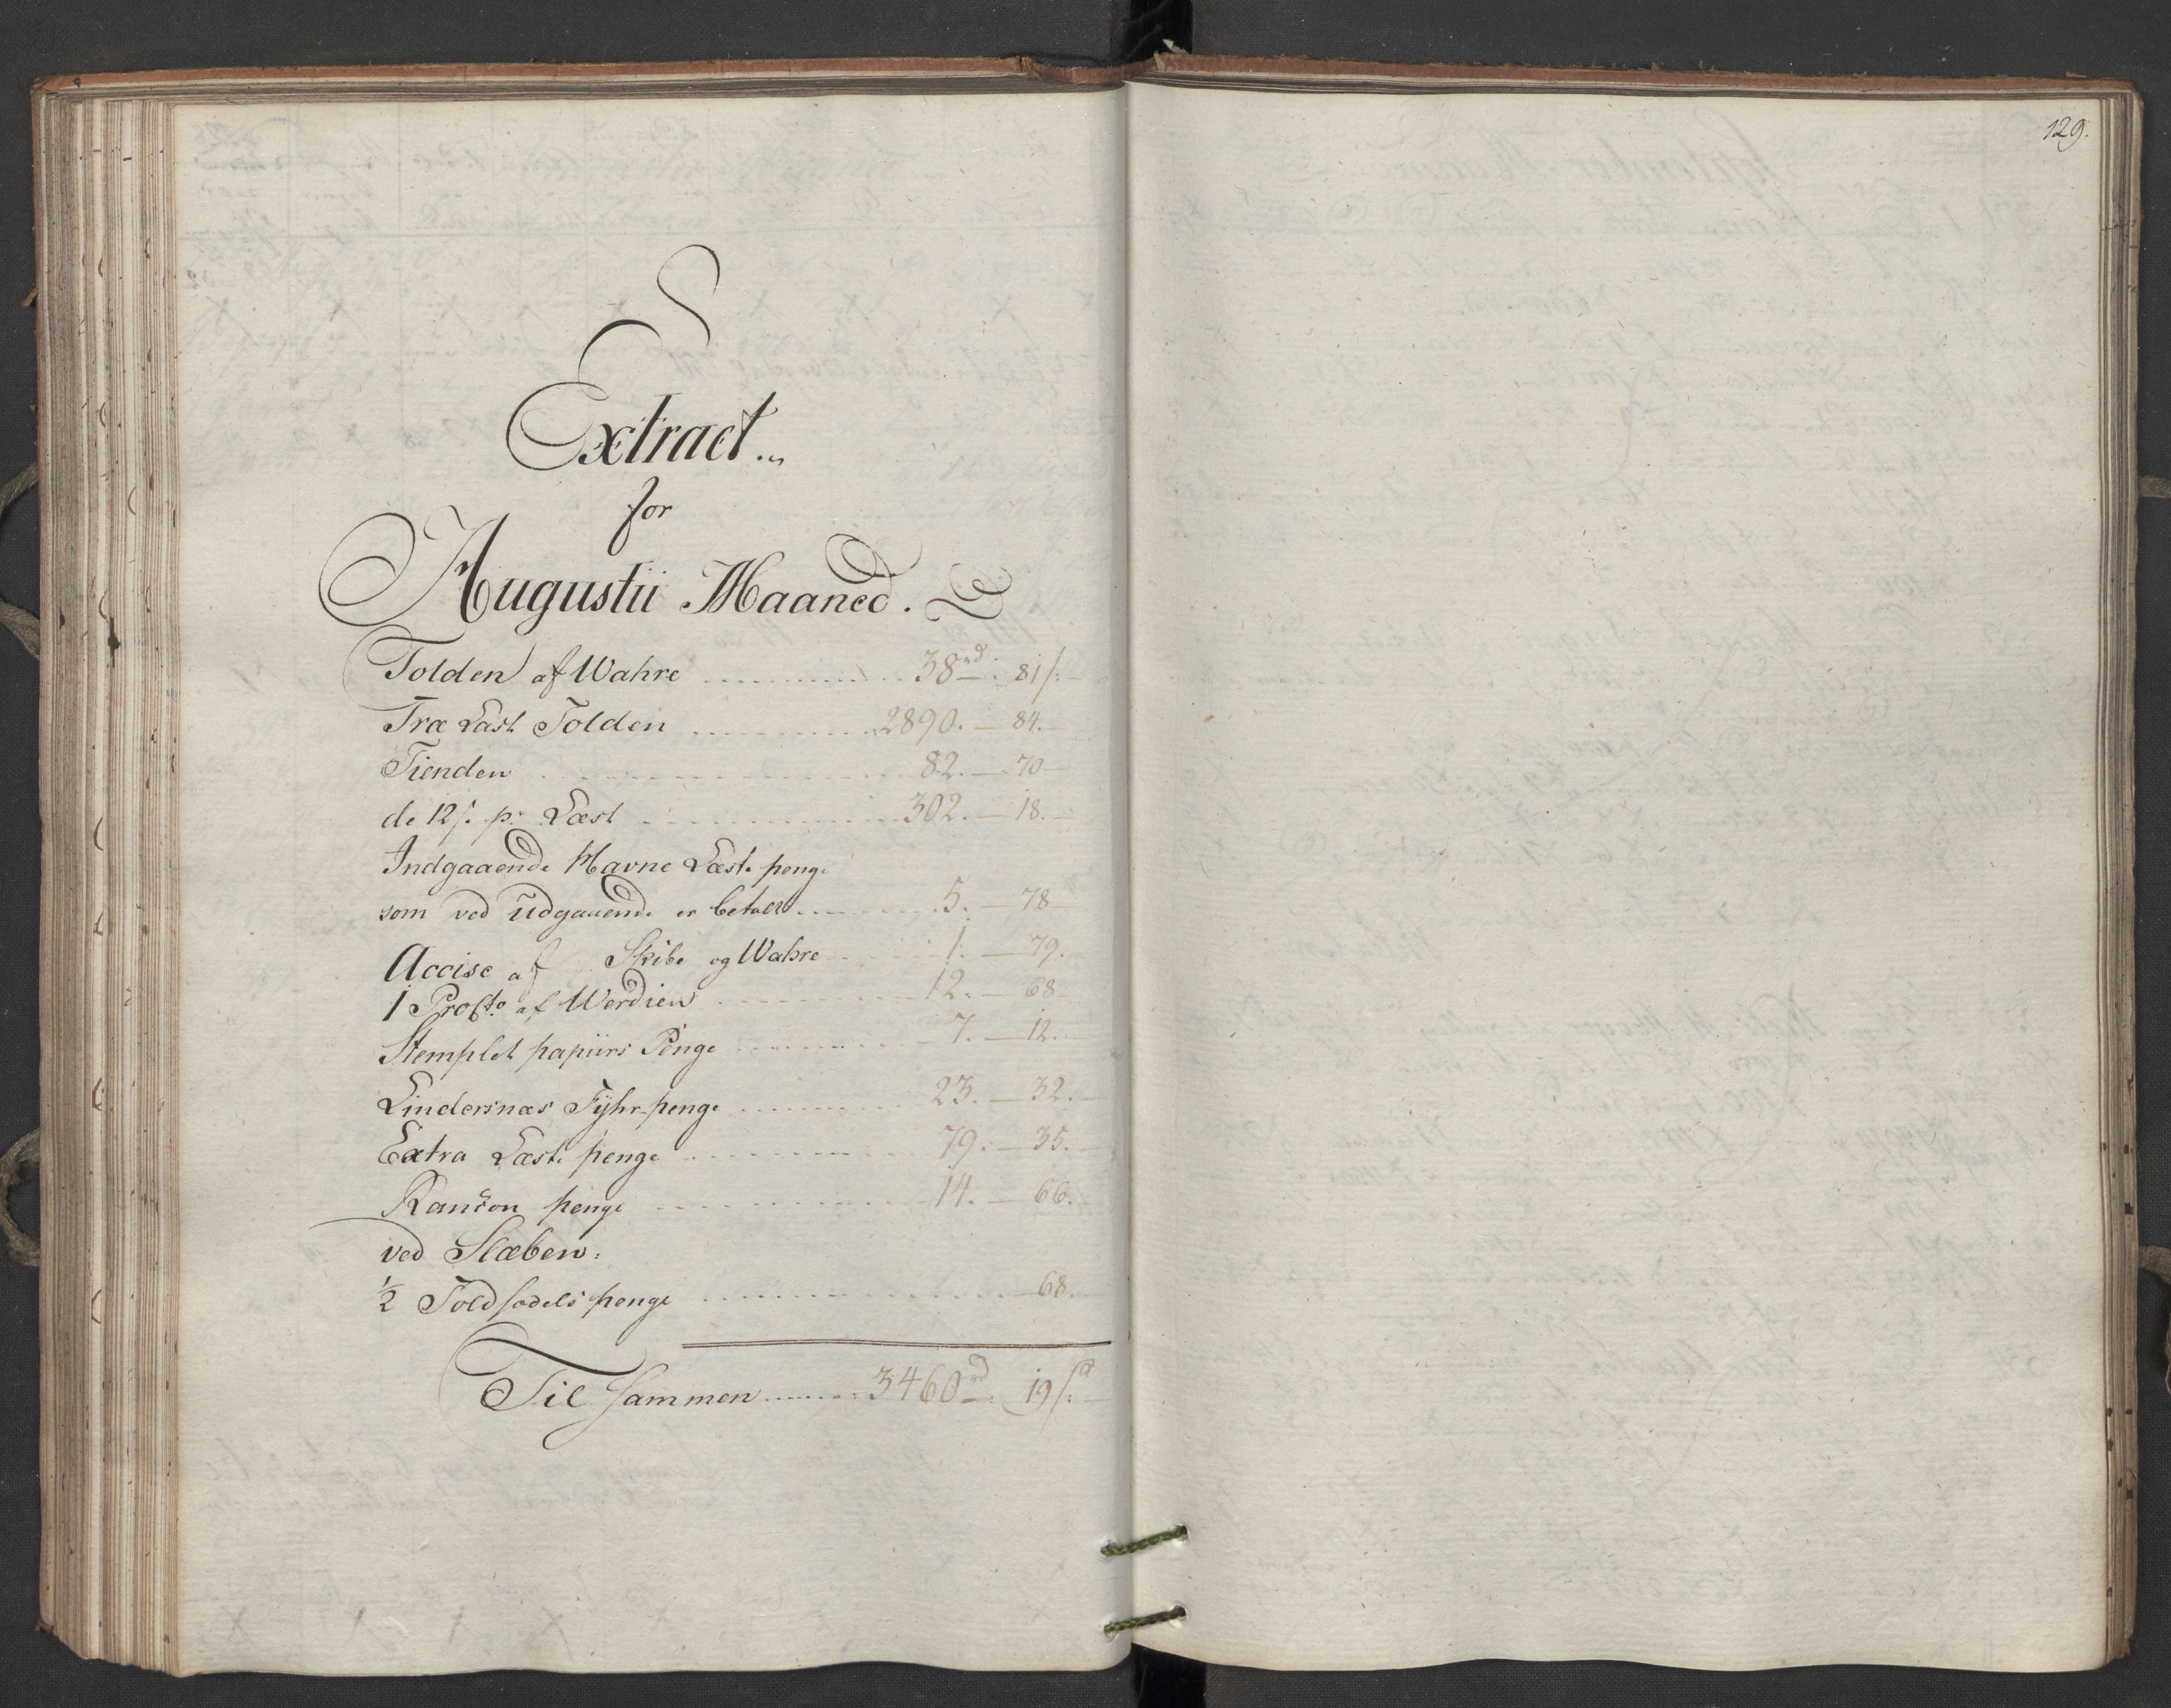 129.
Extract
for
Augustii Maaned.
Tolden af Wahre 38rd: 81/:
Træ Last Tolden 2890. — 84.
Tienden 82. — 70
de 12/: pr Læst 302. — 18.
Indgaaende Havne Læste penge
som ved Udgaaende er betalt 5. — 78
Accise af Skibe og Wahre 1. — 79.
1 Procto af Werdien 12. — 68
Stemplet papiirs Penge 7. — 12.
Lindersnæs Fyhr penge 23. — 32.
Extra Læste penge 79. — 35.
Ranzon penge 14. — 66.
ved Slæben:
1/2 Toldsedels penge 68.
Til sammen 3460rd: 19/: